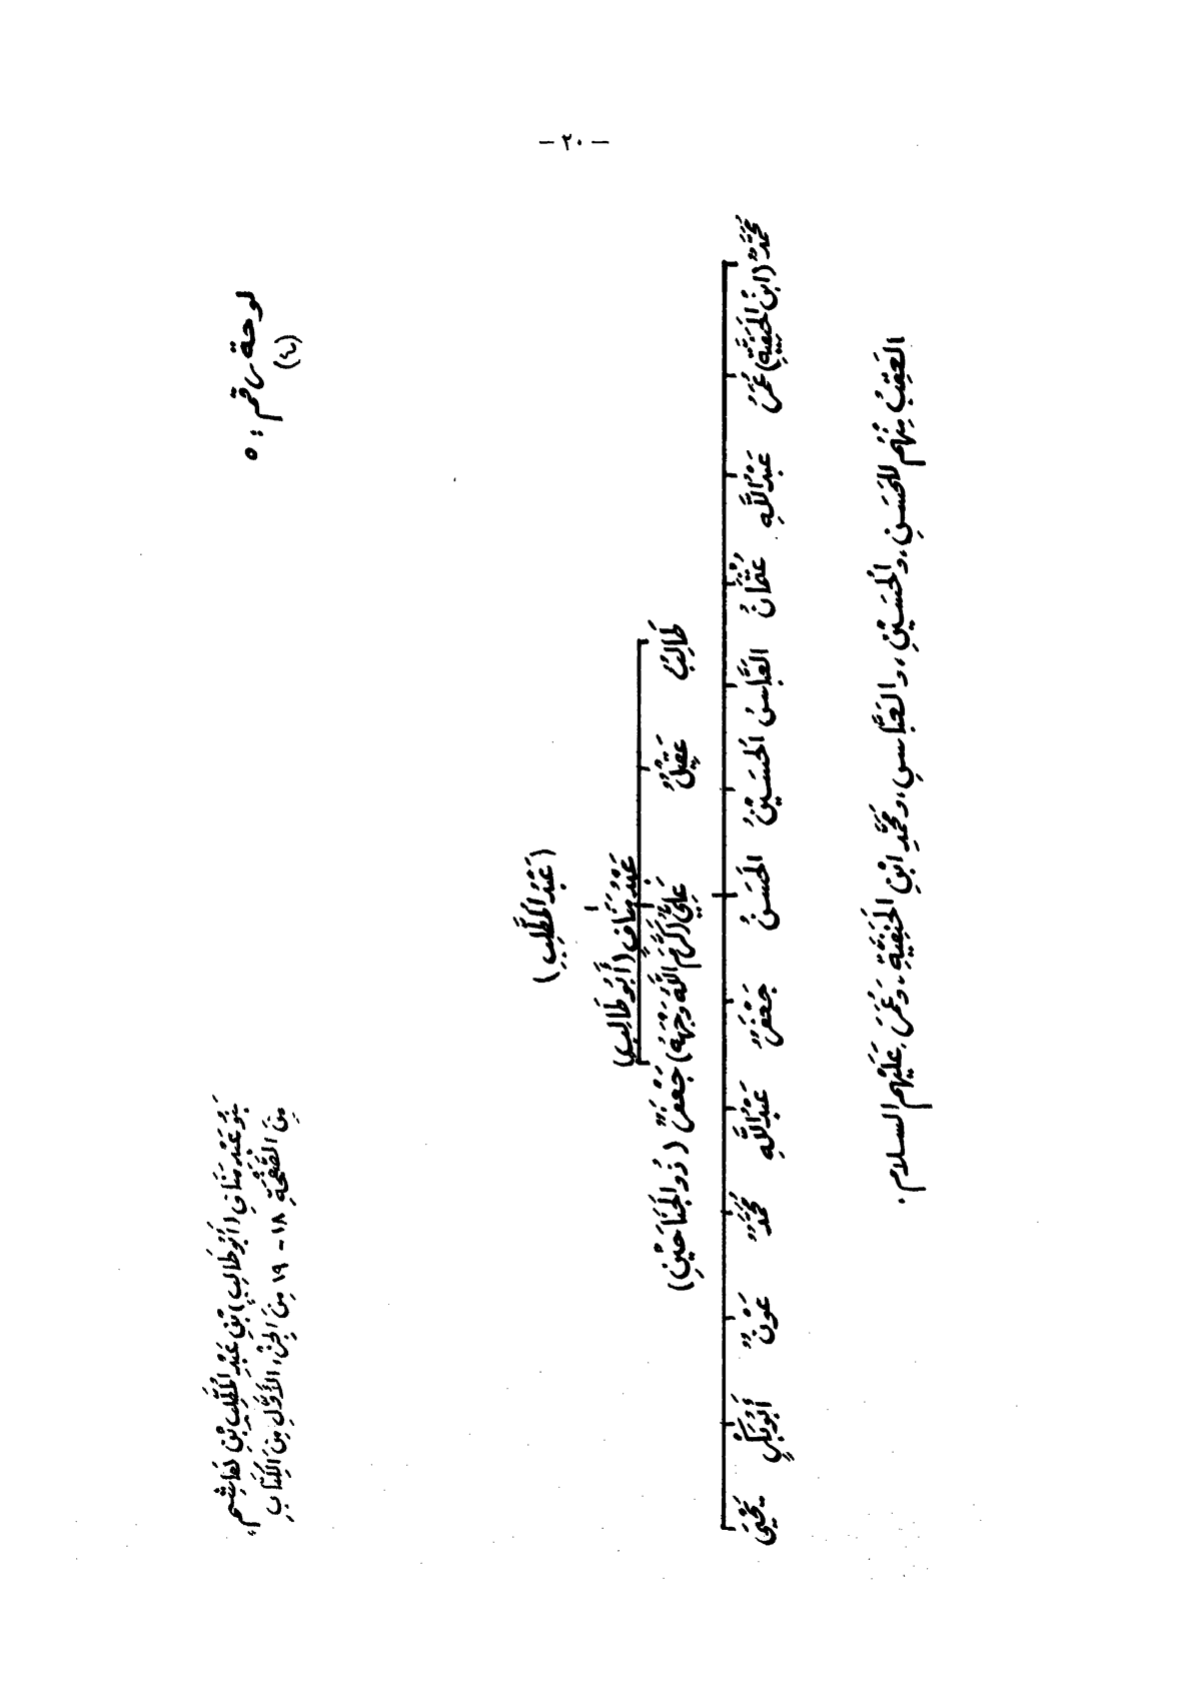 -٢٠-
بَنُو عَبْدِ مَنَافٍ (أَبُو طَالِبٍ) بْنِ عَبْدِ المُطَّلِبِ بْنِ هَاشِمٍ،
مِنَ الصَّفْحَةِ ١٨ - ١٩ مِنَ الجُزْءِ الأَوَّلِ مِنَ الكِتَابِ
لوحة رقم: ٥
(٤)
(عَبْدُ المُطَّلِبِ)
عَبْدُ مَنَافٍ (أَبُو طَالِبٍ)
طَالِبٌ عَقِيْلٌ عَلِيٌّ (كَرَّمَ اللَّهُ وَجْهَهُ) جَعْفَرٌ (ذُو الجَنَاحَيْنِ)
مُحَمَّدٌ (ابْنُ الحَنَفِيَّةِ) عُمَرُ عَبْدُ اللَّهِ عُثْمَانُ العَبَّاسُ الحُسَيْنُ الحَسَنُ جَعْفَرٌ عَبْدُ اللَّهِ مُحَمَّدٌ عَوْنٌ أَبُو بَكْرٍ يَحْيَى
العَقِبُ مِنْهُمْ لِلحَسَنِ، وَالحُسَيْنِ، وَالعَبَّاسِ، وَمُحَمَّدِ ابْنِ الحَنَفِيَّةِ، وَعُمَرَ، عَلَيْهِم السلام.